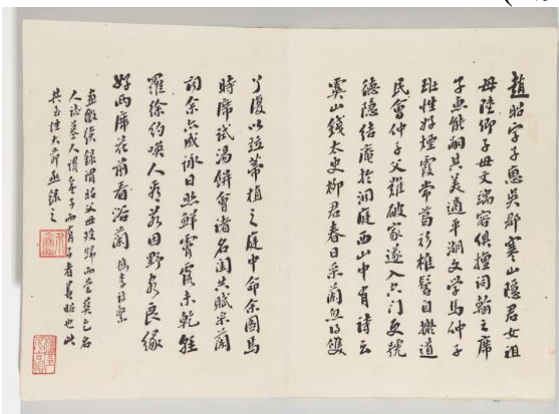 趙昭字子惠吳郡寒山隱君女祖
母陸卿子母文端容俱擅詞翰之席
子惠能嗣其美適平湖文學馬仲子
班性好煙霞常衫椎髻自擬道
民會仲子父難破家遂入更號
德隱結庵於洞庭西山中有詩云
虞山錢太史柳君春日采蘭忽得雙
丫復以並蒂植之庭中命余圖焉
時席試湯餅會諸名閨共賦采蘭
詞余亦成詠日照鮮雲露未乾
羅徐約喚人看若因野良緣
好兩席花前看浴蘭
錄謂昭父母歿歸而營葬
人